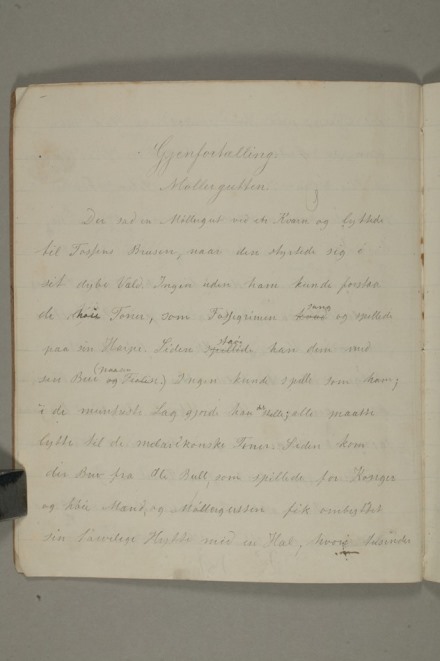 Gjenfortælling.
Møllergutten.
Der sad en Møllergut ved sin Kværn og lyttede
til Fossens Brusen, naar den styrtede sig i
det dybe Vald. Ingen uden ham kunde forstaa
de høie Toner, som Fossegrimen sang og spillede
paa sin Harpe. Siden han dem med
sin Bue (naar og Ingen kunde spille som han;
i de muntreste Lag gjorde han alle maatte
lytte til de melankonske Toner. Siden kom
der Bur fra Ole Bull, som spillede for Konger
og høie Mænd, og Møllergutten fik ombyttet
sin Hytte med en Hal, hvori tusinder